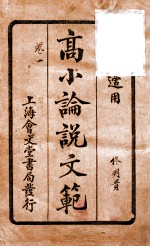 適用
高小論說文範
卷一
上海會文堂書局發行